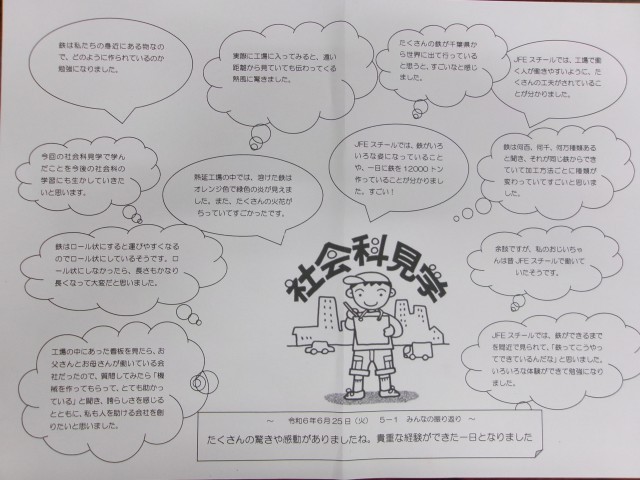 鉄は私たちの身近にある物なの
で、どのように作られているのか
勉強になりました。
実際に工場に入ってみると、遠い
距離から見ていても伝わってくる
熱風に驚きました。
たくさんの鉄が千葉県か
ら世界に出て行っている
と思うと、すごいなと感じ
ました。
JFEスチールでは、工場で働
く人が働きやすいように、た
くさんの工夫がされているこ
とが分かりました。
今回の社会科見学で学ん
だことを今後の社会科の
学習にも生かしていきた
いと思います。
熱延工場の中では、溶けた鉄は
オレンジ色で緑色の炎が見えま
した。また、たくさんの火花が
ちっていてすごかったです。
JFEスチールでは、鉄がいろ
いろな姿になっていること
や、一日に鉄を12000トン
作っていることが分かりまし
た。すごい!
鉄は何百、何千、何万種類ある
と聞き、それが同じ鉄からでき
ていて加工方法ごとに種類が
変わっていてすごいと思いま
した。
鉄はロール状にすると運びやすくなる
のでロール状にしているそうです。ロー
ル状にしなかったら、長さもかなり
長くなって大変だと思いました。
余談ですが、私のおじいちゃ
んは昔JFEスチールで働いて
いたそうです。
社会科見学
工場の中にあった看板を見たら、お
父さんとお母さんが働いている会
社だったので、質問してみたら「機
械を作ってもらって、とても助かっ
ている」と聞き、誇らしさを感じる
とともに、私も人を助ける会社を創
りたいと思いました。
JFEスチールでは、鉄ができるまで
を間近で見られて、「鉄ってこうやっ
てできているんだな」と思いました。
いろいろな体験ができて勉強になり
ました。
~ 令和6年6月25日(火) 5-1 みんなの振り返り ~
たくさんの驚きや感動がありましたね。貴重な経験ができた一日となりました